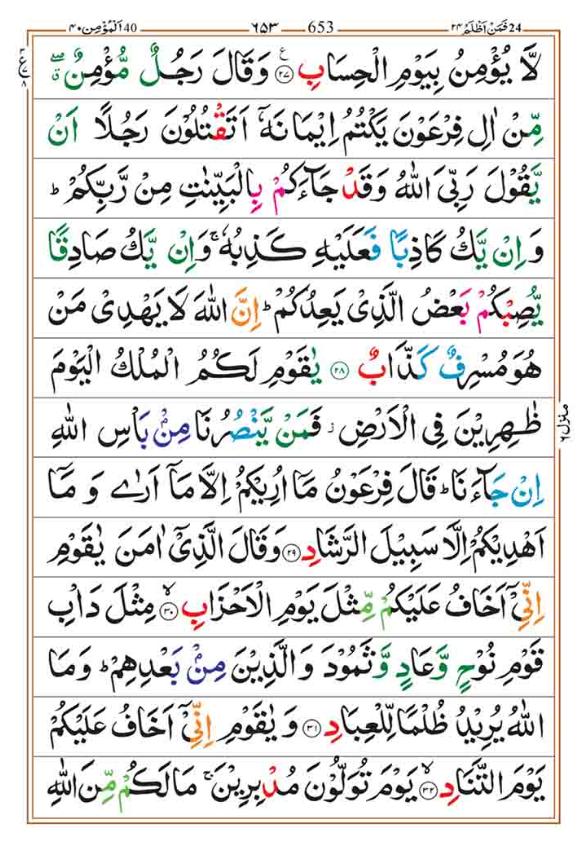 فَمَنْ اَظْلَمُ ۲۴ -24 653 ۶۵۳ 40 اَلْمُؤْمِن ۴۰
لَّا يُؤْمِنُ بِيَوْمِ الْحِسَابِ ﴿۲۷﴾ ع وَقَالَ رَجُلٌ مُّؤْمِنٌ ۖق
مِّنْ اٰلِ فِرْعَوْنَ يَكْتُمُ اِيْمَانَهٗٓ اَتَقْتُلُوْنَ رَجُلًا اَنْ
يَّقُوْلَ رَبِّیَ اللّٰهُ وَقَدْ جَآءَكُمْ بِالْبَيِّنٰتِ مِنْ رَّبِّكُمْ ؕ
وَ اِنْ يَّكُ كَاذِبًا فَعَلَيْهِ كَذِبُهٗ ۚ وَ اِنْ يَّكُ صَادِقًا
يُّصِبْكُمْ بَعْضُ الَّذِىْ يَعِدُكُمْ ؕ اِنَّ اللّٰهَ لَا يَهْدِىْ مَنْ
هُوَ مُسْرِفٌ كَذَّابٌ ﴿۲۸﴾ يٰقَوْمِ لَكُمُ الْمُلْكُ الْيَوْمَ
ظٰهِرِيْنَ فِى الْاَرْضِ ز فَمَنْ يَّنْصُرُنَا مِنْۢ بَاْسِ اللّٰهِ
اِنْ جَآءَنَا ؕ قَالَ فِرْعَوْنُ مَاۤ اُرِيْكُمْ اِلَّا مَاۤ اَرٰى وَ مَاۤ
اَهْدِيْكُمْ اِلَّا سَبِيْلَ الرَّشَادِ ﴿۲۹﴾ وَقَالَ الَّذِىْۤ اٰمَنَ يٰقَوْمِ
اِنِّىْۤ اَخَافُ عَلَيْكُمْ مِّثْلَ يَوْمِ الْاَحْزَابِ ۙ﴿۳۰﴾ مِثْلَ دَاْبِ
قَوْمِ نُوْحٍ وَّعَادٍ وَّثَمُوْدَ وَ الَّذِيْنَ مِنْۢ بَعْدِهِمْ ؕ وَمَا
اللّٰهُ يُرِيْدُ ظُلْمًا لِّلْعِبَادِ ﴿۳۱﴾ وَ يٰقَوْمِ اِنِّىْۤ اَخَافُ عَلَيْكُمْ
يَوْمَ التَّنَادِ ۙ﴿۳۲﴾ يَوْمَ تُوَلُّوْنَ مُدْبِرِيْنَ ۚ مَا لَكُمْ مِّنَ اللّٰهِ
منزل ۶